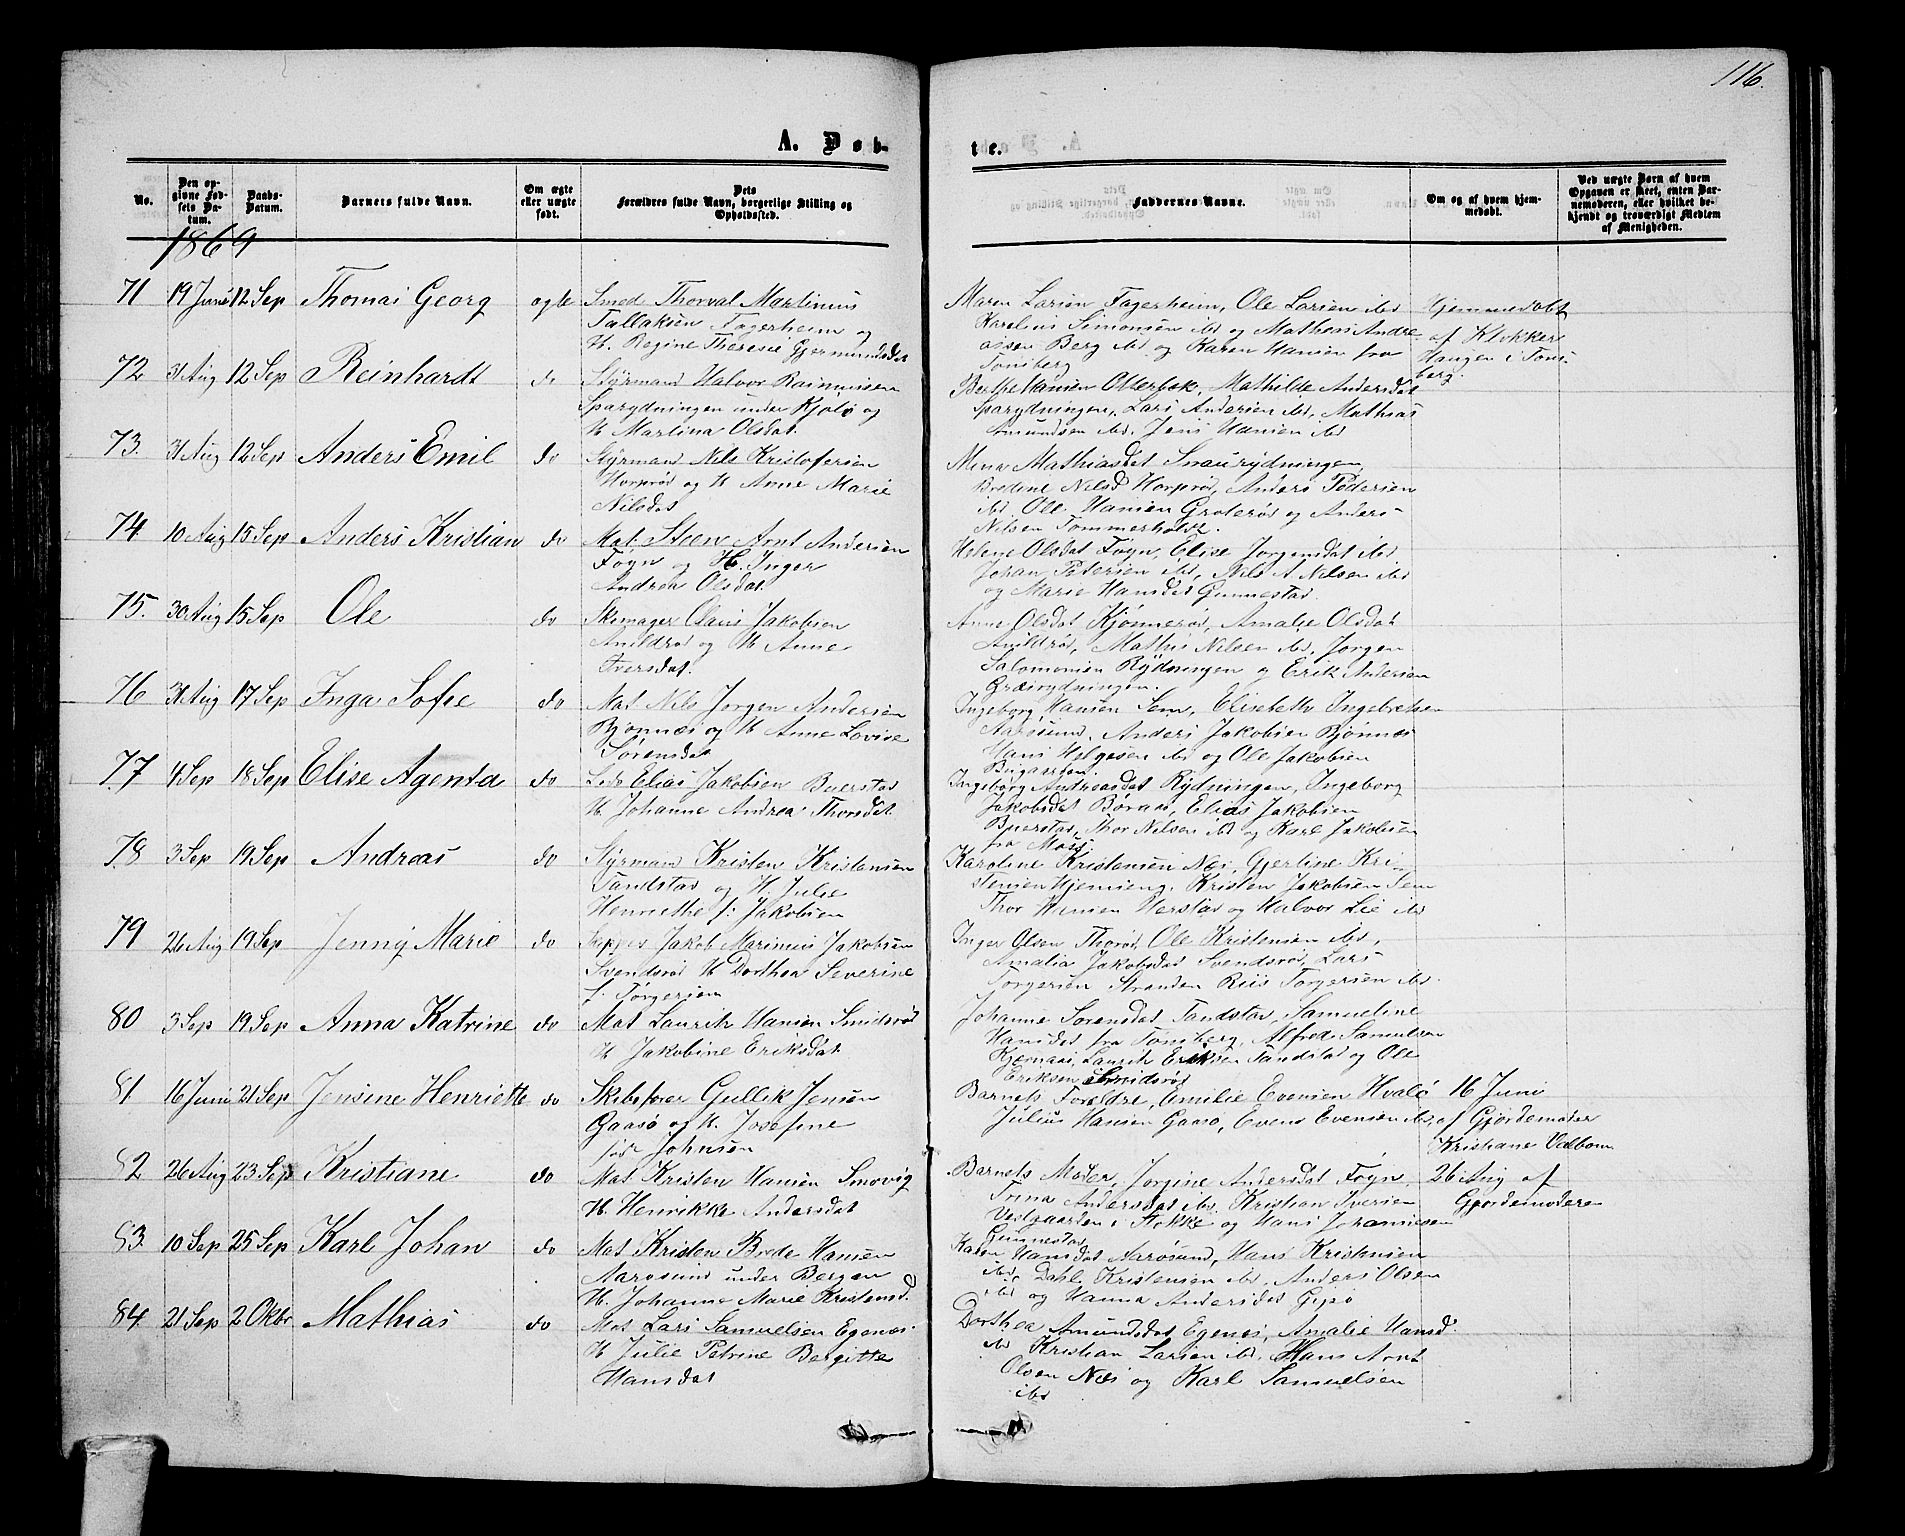 116.
A. Døb-
te.
No.
Den opgivne Fødsels Datum.
Daabs-Datum.
Barnets fulde Navn.
Om ægte eller uægte født.
Dets Forældres fulde Navn, borgerlige Stilling og Opholdssted.
Faddernes Navne.
Om og af hvem hjemmedøbt.
Ved uægte Børn af hvem Opgaven er skeet, enten Barnemoderen, eller hvilket bekjendt og troværdigt Medlem af Menigheden.
1869
71 19 Juni 12 Sep Thomas Georg ægte Smed Thorval Martinius
Tallaksen Fagerheim og
H. Regine Theresie Gjermundsdat
Maren Larsen Fagerheim, Ole Larsen ibd
Karelius Simonsen ibd og Mathias Andre-
assen Berg ibd og Karen Hansen fra
Tønsberg
Hjemmedøbt
af Klokker
Haugen i Tøns-
berg.
72 31 Aug 12 Sep Reinhardt do Styrmand Halvor Rasmussen
Sparydningen under Kjølø og
H Martina Olsdat.
Berthe Hansen Otterbæk, Mathilde Andersdat
Sparydningen, Lars Andersen ibd, Mathias
Amundsen ibd, Jens Hansen ibd
73. 31 Aug 12 Sep Anders Emil do Styrmand Nils Kristofersen
Horprød og H Anne Marie
Nilsdat
Mina Mathiasdat Snaurydningen,
Bredine Nilsd Horprød, Anders Pedersen
ibd. Ole Hansen Groterød og Anders
Nilsen Tommerholt.
74. 10 Aug 15 Sep Anders Kristian do Mat. Steen Arnt Andersen
Føyn og H. Inger
Andrea Olsdat.
Helene Olsdat Føyn, Elise Jørgensdat ibd
Johan Petersen ibd, Nils A. Nilsen ibd
og Marie Hansdat Gunnestad.
75. 30 Aug 15 Sep Ole do Skomager Claus Jakobsen
Anildrød og H Anne
Iversdat.
Anne Olsdat Kjønnerød, Amalie Olsdat
Anildrød, Mathis Nilsen ibd, Jørgen
Salomonsen Rydningen og Erik Andersen
Græsrydningen.
76 31 Aug 17 Sep Inga Sofie do Mat Nils Jørgen Andersen
Bjønnes og H Anne Lovise
Sørensdat
Ingeborg Hansen Sem, Elisabeth Ingebretsen
Aarøsund, Anders Jakobsen Bjønnes
Hans Helgesen ibd og Ole Jakobsen
77. 4 Sep 18 Sep Elise Agenta do Elias Jakobsen Buerstad
H Johanne Andrea Thorsdat.
Ingeborg Andreasdat Rydningen, Ingeborg
Jakobsdat Boraas, Elias Jakobsen
Bjuerstad, Thor Nilsen ibd og Karl Jakobsen
fra Moss
78 3 Sep 19 Sep Andreas do Styrmand Kristen Kristensen
Sandstad og H. Julie
Henriethe f: Jakobsen
Karoline Kristensen Næs, Gjerline Kri-
stensen Hjemseng, Kristen Jakobsen Sem
Thor Hansen Herstad og Halvor Lie ibd
79 26 Aug 19 Sep Jenny Marie do Skipper Jakob Marinius Jakobsen
Svendsrød H Dorthea Severine
f. Torgersen
Inger Olsen Thorød, Ole Kristensen ibd,
Amalia Jakobsdat Svendsrød, Lars
Torgersen Stranden Riis Torgersen ibd.
80 3 Sep 19 Sep Anna Katrine do Mat Lauritz Hansen Smidsrød
H Jakobine Eriksdat
Johanne Sørensdat Sandstad, Samueline
Hansdat fra Tønsberg, Alfred Samuelsen
Kjernaas, Lauritz Eriksen Sandstad og Ole
Eriksen Smidsrød
81 16 Juni 21 Sep Jensine Henriette do Skibsfører Gullik Jensen
Gaasø og H. Josefine
født Johnsen
Barnets Forældre, Emilie Evensen Hvalø
Julius Hansen Gaasø, Evens Evensen ibd.
16 Juni
af Gjordemoder
Kristiane Valbom
82 26 Aug 23 Sep Kristiane do Mat Kristen Hansen Smøvig
H. Henrikke Andersdat
Barnets Moder, Jørgine Andersdat Føyn,
Trina Andersdat ibd. Kristian Iversen
Vestgaarden i Stokke og Hans Johannesen
Gunnestad
26 Aug af
Gjordemoderen
83. 10 Sep 25 Sep Karl Johan do Mat Kristen Brede Hansen
Aarøsund under Bergan
H. Johanne Marie Kristensd.
Karen Hansdat Aarøsund, Hans Kristensen
ibd, Dahl Kristensen ibd, Anders Olsen
ibd og Hanna Andersdat Gipø
84. 21 Sep 2 Oktbr Mathias do Mat Lars Samuelsen Egenæs
H Julie Petrine Bergitte
Hansdat
Dorthea Amundsdat Egenæs, Amalie Hansd.
ibd Kristian Larsen ibd, Hans Arnt
Olsen Næs og Karl Samuelsen
ibd